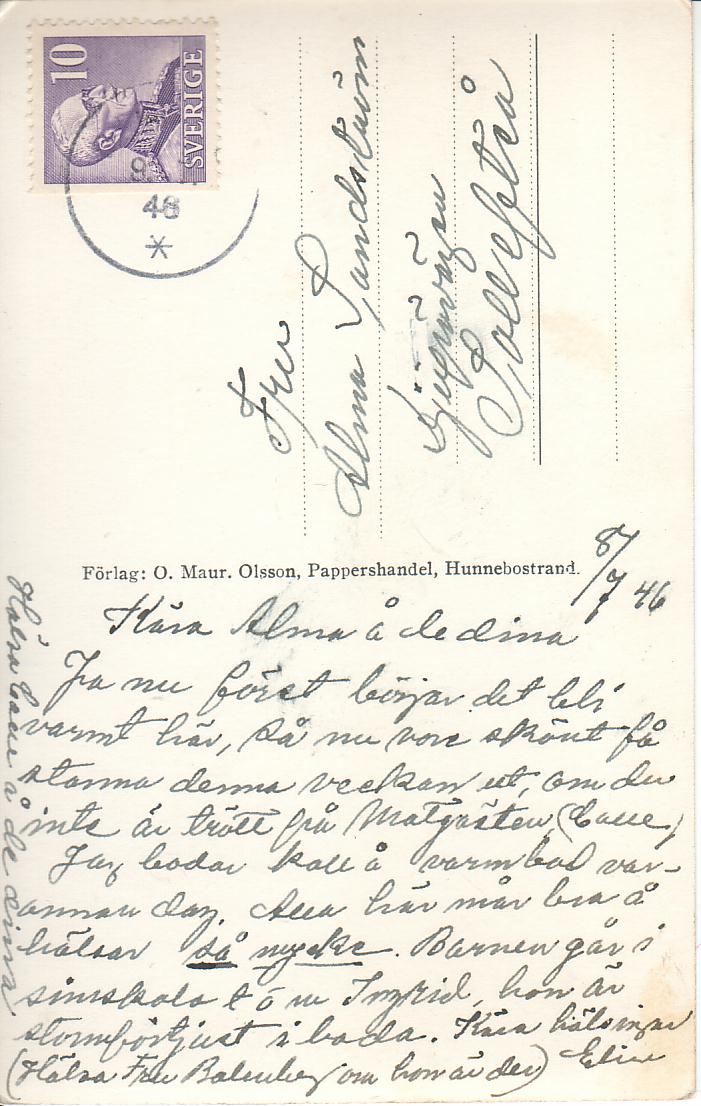 10
SVERIGE
46
Fru
Alma Sandström
Djupövägen
Sollefteå
Förlag: O. Maur. Olsson, Pappershandel, Hunnebostrand.
8/7 46
Kära Alma å de dina
Ja nu först börjar det bli
varmt här, så nu vore skönt få
stanna denna veckan ut, om du
inte är trött på Matgästen (Calle)
Jag badar kall å varmbad var-
annan dag. Alla här mår bra å
hälsar så mycke. Barnen går i
simskola t o m Ingrid, hon är
stormförtjust i bada. Kära hälsningar
(Hälsa Fru Balenberg om hon är der) Elise
Hälsa Calle å de dina